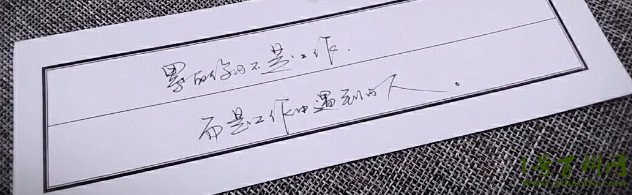 累的你的不是工作.
而是工作中遇到的人。